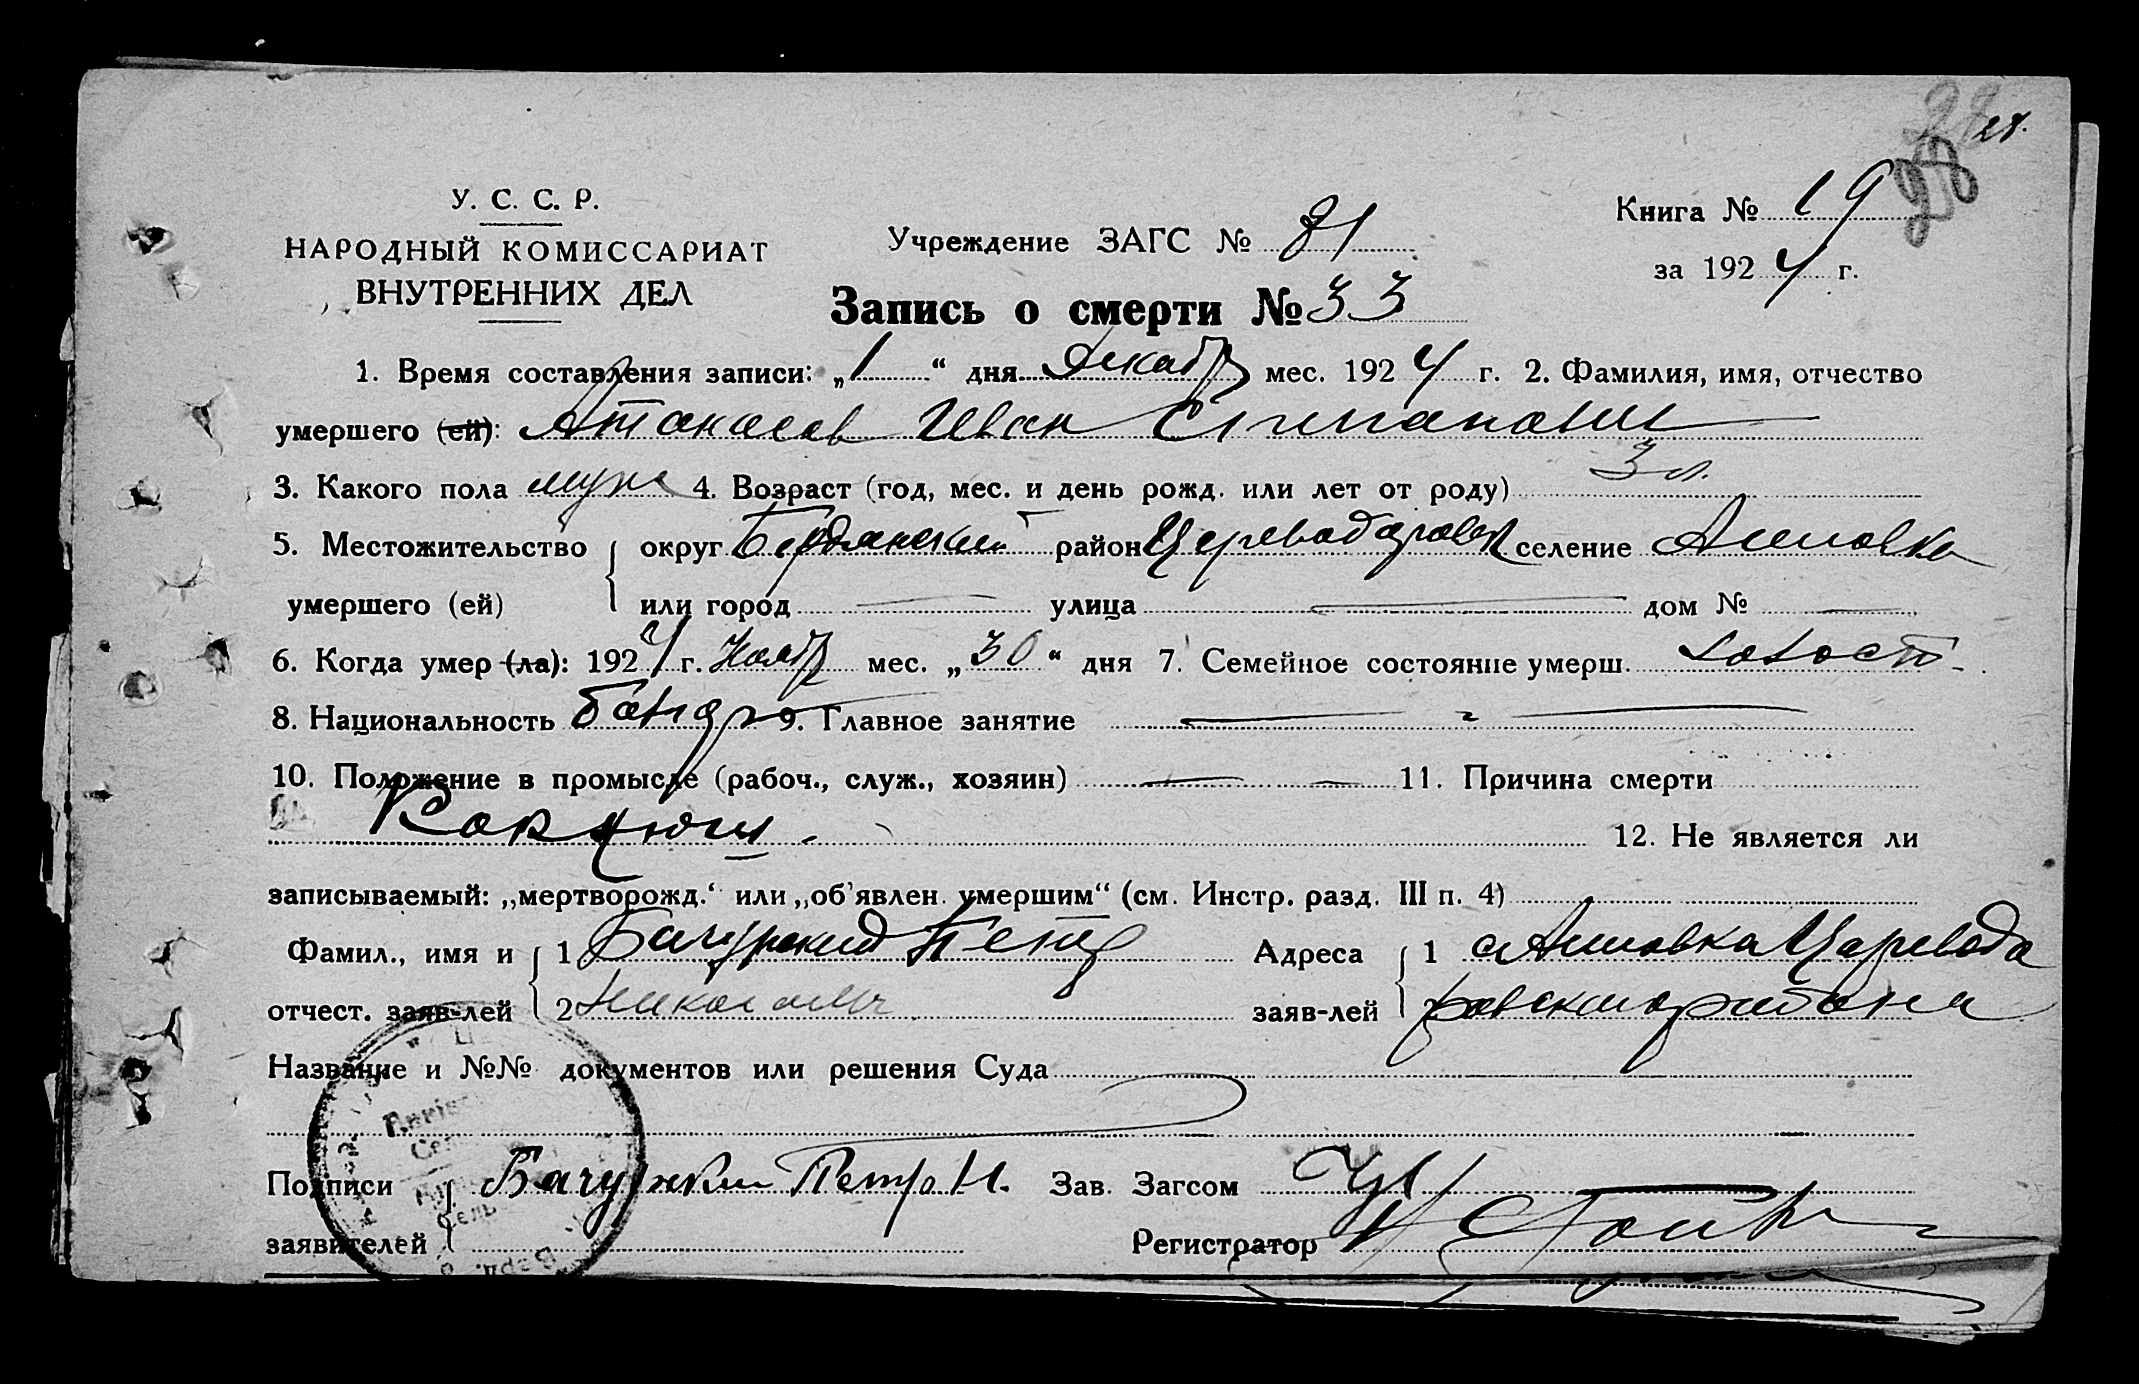 28 28.
28
У. С. С. Р.
НАРОДНЫЙ КОМИССАРИАТ
ВНУТРЕННИХ ДЕЛ
Учреждение ЗАГС №
Книга № 19
за 1924 г.
Запись о смерти № 33
1. Время составления записи: „1“ дня Декабр мес. 1924 г. 2. Фамилия, имя, отчество
умершего (ей): Атанасов Иван Степанович
3. Какого пола муж 4. Возраст (год, мес. и день рожд. или лет от роду) 3 л.
5. Местожительство округ Бердянский район Цареводаровск селение
умершего (ей) или город — улица — дом № —
6. Когда умер (ла): 1924 г. Ноябр мес. „30“ дня 7. Семейное состояние умерш. холост
8. Национальность 9. Главное занятие —
10. Положение в промысле (рабоч., служ., хозяин) — — 11. Причина смерти
12. Не является ли
записываемый: „мертворожд.‘ или „об’явлен умершим“ (см. Инстр. разд. III п. 4)
Фамил., имя и 1 Петр Адреса 1
отчест. заяв-лей 2 Николаевич заяв-лей 2 района
Название и №№ документов или решения Суда
Подписи Петро Н. Зав. Загсом
заявителей Регистратор